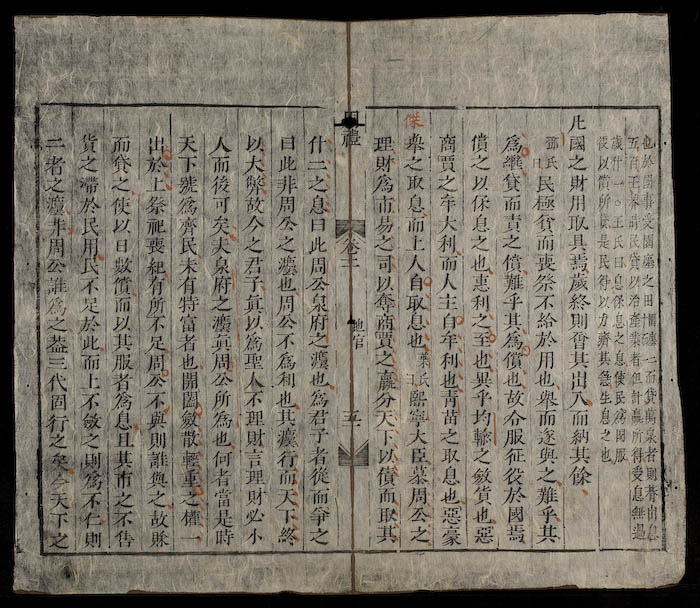 也於國事受園廛之田而貸萬泉者則朞出息
五百王莽時民貸以治產業者但計贏所得受息無過
歲什一〇王氏曰息保息之息使民為國服
使以償所貸是民得以方齊其急生息之也
凡國之財用取具焉歲終則會其出入而納其餘
鄧氏曰民極貧而喪祭不給於用也舉而遂與之難乎其
為繼貸而責之償難乎其為償也故令服征役於國焉
償之以保息之也惠利之至也異乎均輸之斂貨也惡
商賈之牟大利而人主自牟利也青苗之取息也惡豪
傑
舉之取息而上人自取息也葉氏曰熙寧大臣慕周公之
理財為市易之司以奪商賈之贏分天下以債而取其
周禮 卷三 地官 五
什二之息曰此周公泉府之灋也為君子者從而爭之
曰此非周公之灋也周公不為利也其灋行而天下終
以大弊故今之君子眞以為聖人不理財言理財必小
人而後可矣夫泉府之灋眞周公所為也何者當是時
天下號為齊民未有特富者也開闔斂散輕重之權一
出於上祭祀喪紀有所不足周公不與則誰與之故賒
而貸之使以日數償而以其服者為息且其市之不售
貨之滯於民用民不足於此而上不斂之則為不仁則
二者之灋非周公誰為之葢三代固行之矣今天下之